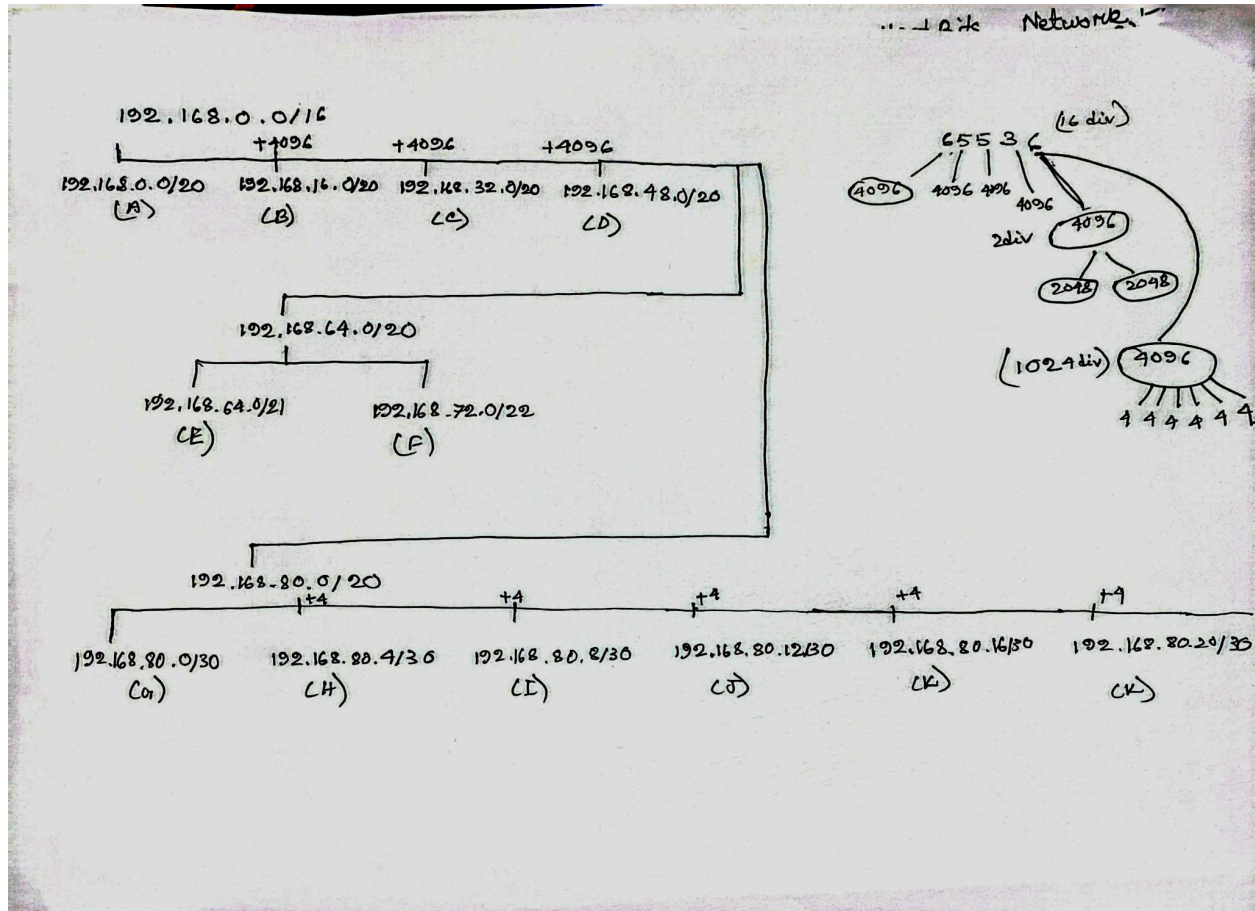 Network
192.168.0.0/16
+4096 +4096 +4096
192.168.0.0/20 192.168.16.0/20 192.168.32.0/20 192.168.48.0/20
(A) (B) (C) (D)
65536 (16 div)
4096 4096 4096 4096
2div 4096
2048 2048
(1024div) 4096
4 4 4 4 4 4
192.168.64.0/20
192.168.64.0/21 192.168.72.0/22
(E) (F)
192.168.80.0/20
+4 +4 +4 +4 +4
192.168.80.0/30 192.168.80.4/30 192.168.80.8/30 192.168.80.12/30 192.168.80.16/30 192.168.80.20/30
(G) (H) (I) (J) (K) (K)